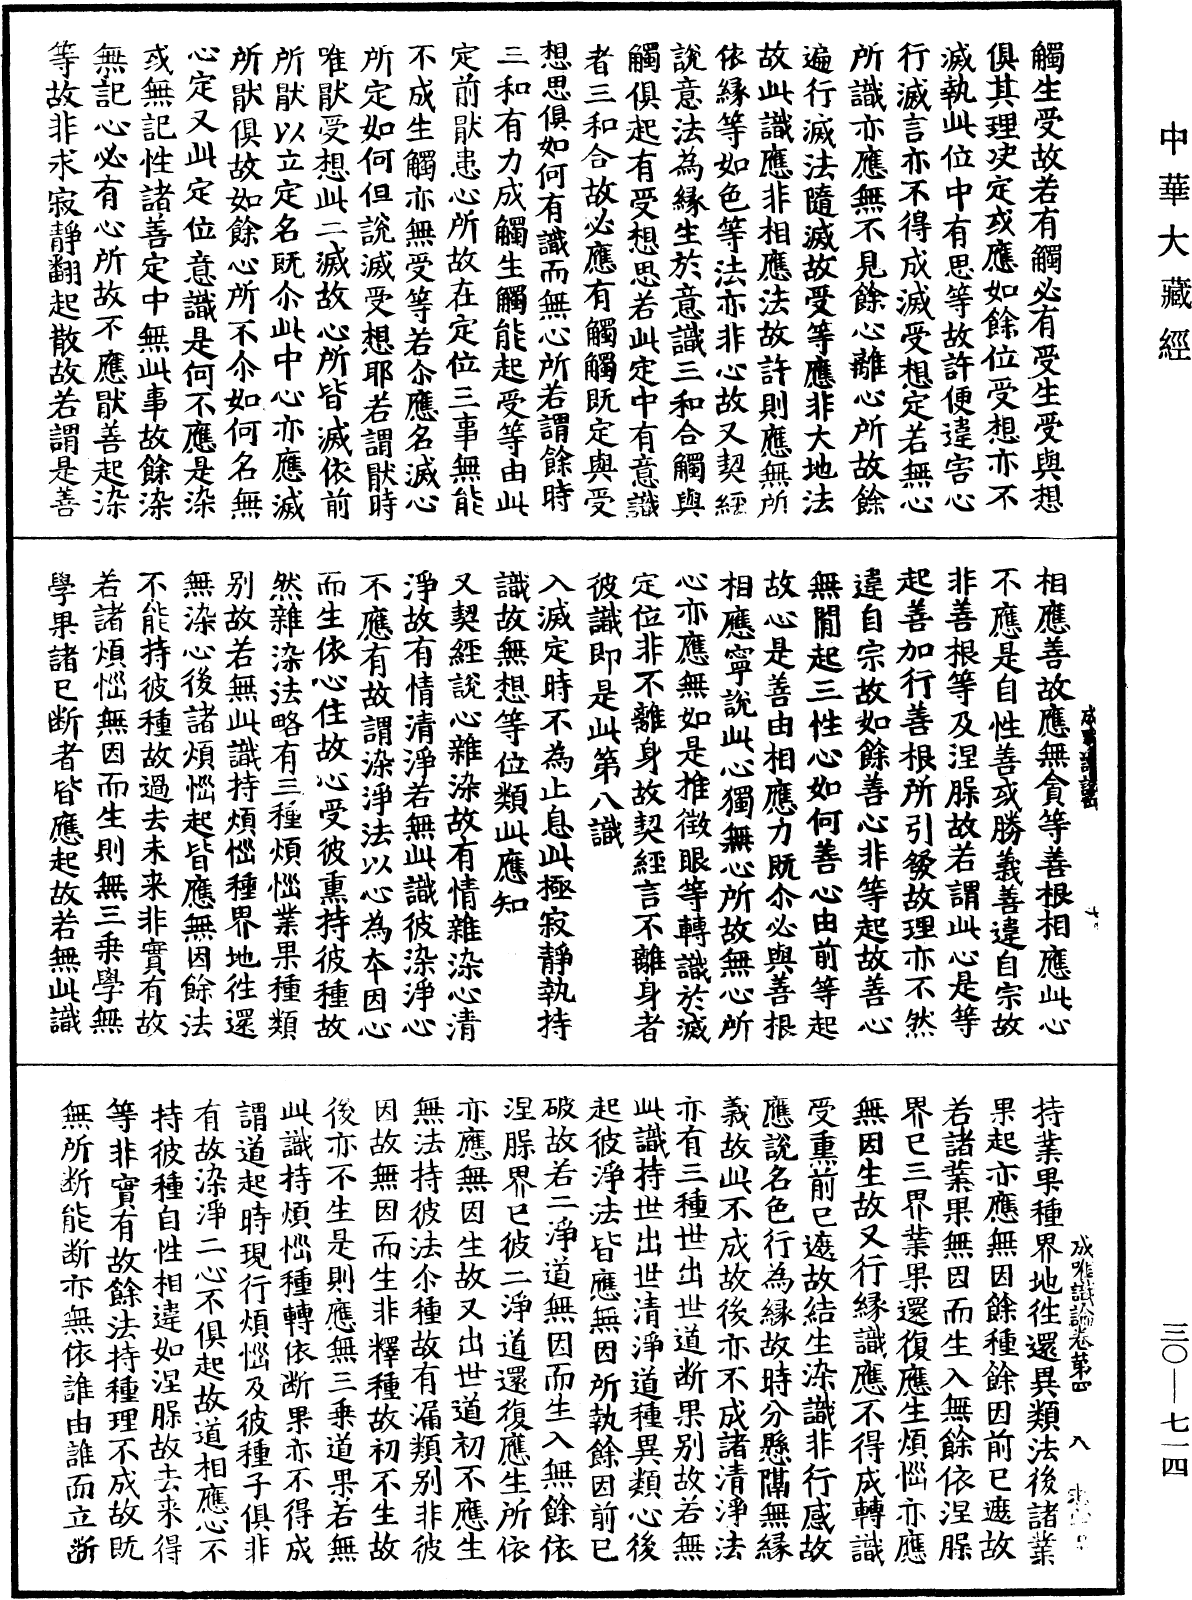 中華大藏經
觸生受故若有觸必有受生受與想
俱其理決定或應如餘位受想亦不
滅執此位中有思等故許便違害心
行滅言亦不得成滅受想定若無心
所識亦應無不見餘心離心所故餘
遍行滅法隨滅故受等應非大地法
故此識應非相應法故許則應無所
依緣等如色等法亦非心故又契經
說意法為緣生於意識三和合觸與
觸俱起有受想思若此定中有意識
者三和合故必應有觸觸既定與受
想思俱如何有識而無心所若謂餘時
三和有力成觸生觸能起受等由此
定前猒患心所故在定位三事無能
不成生觸亦無受等若尒應名滅心
所定如何但說滅受想耶若謂猒時
唯猒受想此二滅故心所皆滅依前
所猒以立定名既尒此中心亦應滅
所猒俱故如餘心所不尒如何名無
心定又此定位意識是何不應是染
或無記性諸善定中無此事故餘染
無記心必有心所故不應猒善起染
等故非求寂靜翻起散故若謂是善
相應善故應無貪等善根相應此心
不應是自性善或勝義善違自宗故
非善根等及涅槃故若謂此心是等
起善加行善根所引發故理亦不然
違自宗故如餘善心非等起故善心
無間起三性心如何善心由前等起
故心是善由相應力既尒必與善根
相應寧說此心獨無心所故無心所
心亦應無如是推徵眼等轉識於滅
定位非不離身故契經言不離身者
彼識即是此第八識
入滅定時不為止息此極寂靜執持
識故無想等位類此應知
又契經說心雜染故有情雜染心清
淨故有情清淨若無此識彼染淨心
不應有故謂染淨法以心為本因心
而生依心住故心受彼熏持彼種故
然雜染法略有三種煩惱業果種類
別故若無此識持煩惱種界地往還
無染心後諸煩惱起皆應無因餘法
不能持彼種故過去未來非實有故
若諸煩惱無因而生則無三乘學無
學果諸已斷者皆應起故若無此識
成唯識論卷第四 八
持業果種界地往還異類法後諸業
果起亦應無因餘種餘因前已遮故
若諸業果無因而生入無餘依涅槃
界已三界業果還復應生煩惱亦應
無因生故又行緣識應不得成轉識
受熏前已遮故結生染識非行感故
應說名色行為緣故時分懸隔無緣
義故此不成故後亦不成諸清淨法
亦有三種世出世道斷果別故若無
此識持世出世清淨道種異類心後
起彼淨法皆應無因所執餘因前已
破故若二淨道無因而生入無餘依
涅槃界已彼二淨道還復應生所依
亦應無因生故又出世道初不應生
無法持彼法尒種故有漏類別非彼
因故無因而生非釋種故初不生故
後亦不生是則應無三乘道果若無
此識持煩惱種轉依斷果亦不得成
謂道起時現行煩惱及彼種子俱非
有故染淨二心不俱起故道相應心不
持彼種自性相違如涅槃故去來得
等非實有故餘法持種理不成故既
無所斷能斷亦無依誰由誰而立斷
三〇—七一四